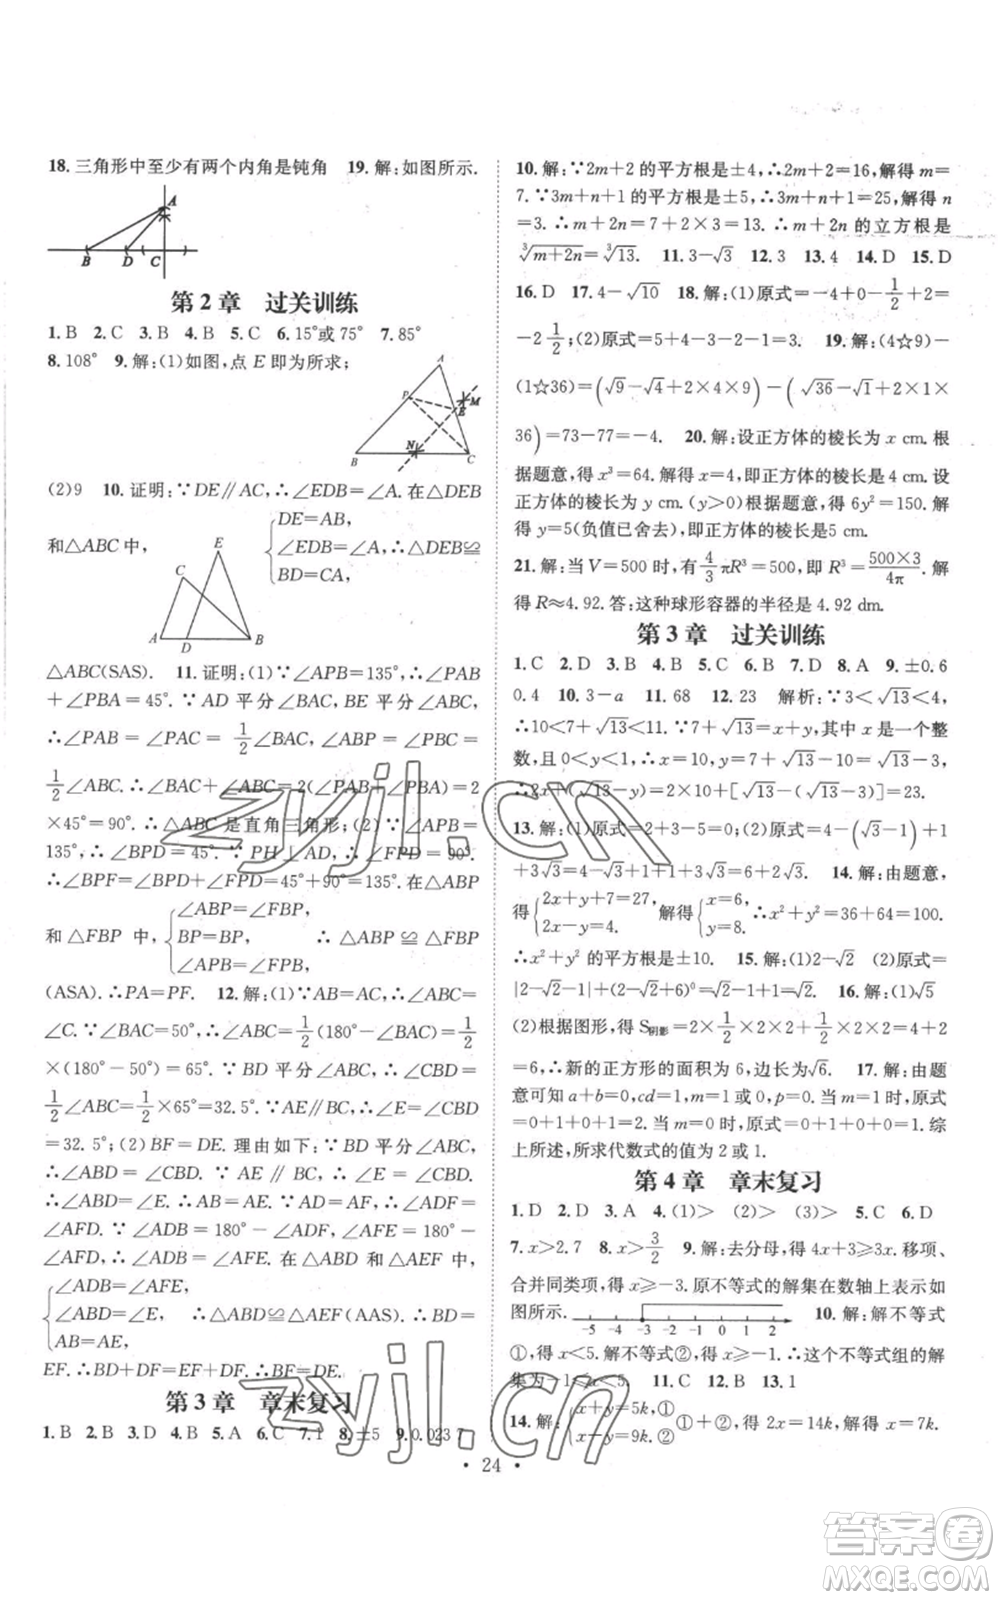 18.三角形中至少有两个内角是钝角 19.解:如图所示.
A
B D C
第2章 过关训练
1.B 2.C 3.B 4.B 5.C 6.15°或75° 7.85°
8.108° 9.解:(1)如图,点E即为所求;
A
P
E M
N
B C
(2)9 10.证明:∵DE∥AC,∴∠EDB=∠A.在△DEB
和△ABC中,{DE=AB, ∠EDB=∠A, BD=CA, ∴△DEB≌
E
C
A D B
△ABC(SAS). 11.证明:(1)∵∠APB=135°,∴∠PAB
+∠PBA=45°.∵AD平分∠BAC,BE平分∠ABC,
∴∠PAB=∠PAC=1/2∠BAC,∠ABP=∠PBC=
1/2∠ABC,∴∠BAC+∠ABC=2(∠PAB+∠PBA)=2
×45°=90°.∴△ABC是直角三角形;(2)∵∠APB=
135°,∴∠BPD=45°.∵PH⊥AD,∴∠FPD=90°.
∴∠BPF=∠BPD+∠FPD=45°+90°=135°.在△ABP
和△FBP中,{∠ABP=∠FBP, BP=BP, ∠APB=∠FPB, ∴△ABP≌△FBP
(ASA).∴PA=PF. 12.解:(1)∵AB=AC,∴∠ABC=
∠C.∵∠BAC=50°,∴∠ABC=1/2(180°-∠BAC)=1/2
×(180°-50°)=65°.∵BD平分∠ABC,∴∠CBD=
1/2∠ABC=1/2×65°=32.5°.∵AE∥BC,∴∠E=∠CBD
=32.5°;(2)BF=DE.理由如下:∵BD平分∠ABC,
∴∠ABD=∠CBD.∵AE∥BC,∴∠AEB=∠CBD.
∴∠ABD=∠E.∴AB=AE.∵AD=AF,∴∠ADF=
∠AFD.∵∠ADB=180°-∠ADF,∠AFE=180°-
∠AFD,∴∠ADB=∠AFE.在△ABD和△AEF中,
{∠ADB=∠AFE, ∠ABD=∠E, AB=AE, ∴△ABD≌△AEF(AAS).∴BD=
EF.∴BD+DF=EF+DF.∴BF=DE.
第3章 章末复习
1.B 2.B 3.D 4.B 5.A 6.C 7.1 8.±5 9.0.0237
10.解:∵2m+2的平方根是±4,∴2m+2=16,解得m=
7.∵3m+n+1的平方根是±5,∴3m+n+1=25,解得n
=3.∴m+2n=7+2×3=13.∴m+2n的立方根是
∛(m+2n)=∛13. 11.3-√3 12.3 13.4 14.D 15.D
16.D 17.4-√10 18.解:(1)原式=-4+0-1/2+2=
-2 1/2;(2)原式=√3-2-1-2=√3-5. 19.解:(4☆9)-
(1☆36)=(√9-√4+2×4×9)-(√36-√1+2×1×
36)=73-77=-4. 20.解:设正方体的棱长为x cm.根
据题意,得x³=64.解得x=4,即正方体的棱长为4 cm.设
正方体的棱长为y cm.(y>0)根据题意,得6y²=150.解
得y=5(负值已舍去),即正方体的棱长为5 cm.
21.解:当V=500时,有4/3πR³=500,即R³=500×3/4π.解
得R≈4.92.答:这种球形容器的半径是4.92 dm.
第3章 过关训练
1.C 2.D 3.B 4.A 5.C 6.B 7.D 8.A 9.±0.6
0.4 10.3-a 11.68 12.23 解析:∵3<√13<4,
∴10<7+√13<11.∵7+√13=x+y,其中x是一个整
数,且0<y<1,∴x=10,y=7+√13-10=√13-3,
∴2x+(√13-y)=2×10+[√13-(√13-3)]=23.
13.解:(1)原式=2+3-5=0;(2)原式=4-(√3-1)+1
+3√3=4-√3+1+1+3√3=6+2√3. 14.解:由题意,
得{2x+y+7=27, 2x-y=4. 解得{x=6, y=8. ∴x²+y²=36+64=100.
∴x²+y²的平方根是±10. 15.解:(1)2-√2 (2)原式=
|2-√2-1|+(2-√2+√2-6)⁰=√2-1+1=√2. 16.解:(1)√5
(2)根据图形,得S阴影=2×1/2×2×2+1/2×2×2=4+2
=6,∴新的正方形的面积为6,边长为√6. 17.解:由题
意可知a+b=0,cd=1,m=1或0,p=0.当m=1时,原式
=0+1+0+1=2.当m=0时,原式=0+1+0+0=1.综
上所述,所求代数式的值为2或1.
第4章 章末复习
1.D 2.D 3.A 4.(1)> (2)> (3)> 5.C 6.D
7.x>2.7 8.x>3/2 9.解:去分母,得4x+3≥3x.移项、
合并同类项,得x≥-3.原不等式的解集在数轴上表示如
图所示. -5 -4 -3 -2 -1 0 1 2 10.解:解不等式
①,得x<5.解不等式②,得x≥-1.∴这个不等式组的解
集为-1≤x<5. 11.C 12.B 13.1
14.解:{x+y=5k,① x-y=9k.② ①+②,得2x=14k,解得x=7k.
• 24 •
zyjl.cn
zyjl.cn
答案卷
MXQE.COM